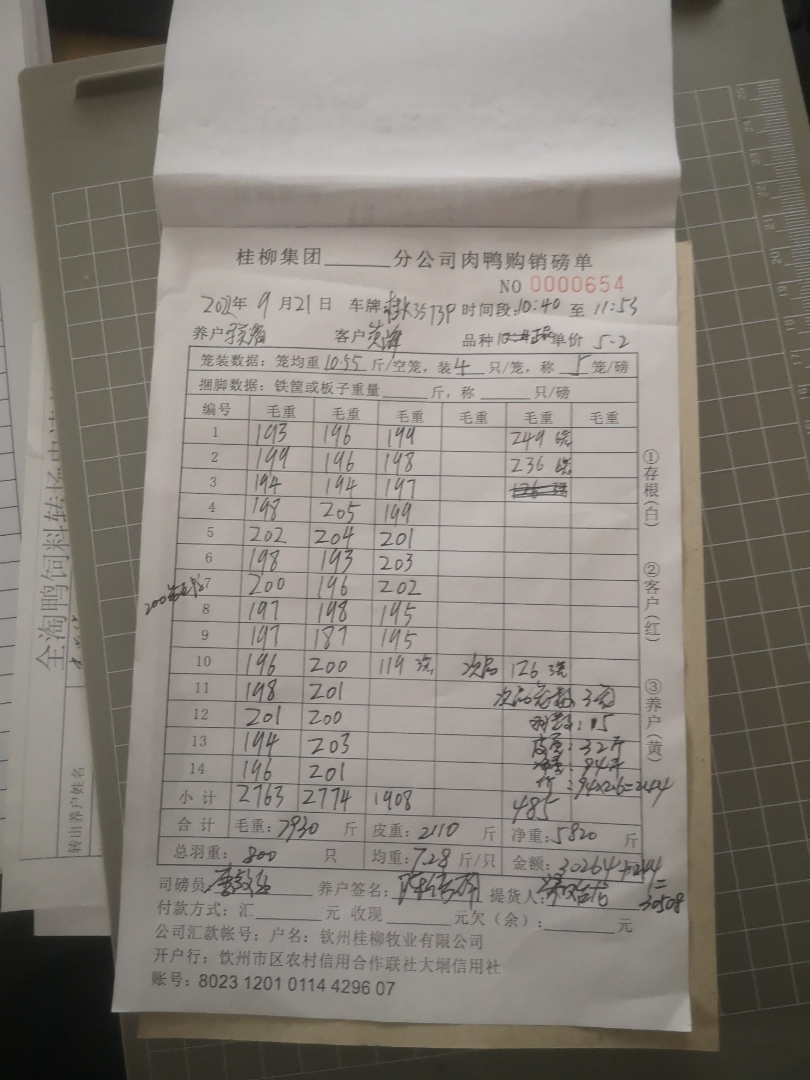 桂柳集团______分公司肉鸭购销磅单
NO 0000654
2022年 9月21日 车牌 桂K3573P 时间段:10:40 至 11:53
养户 客户 品种 单价 5.2
笼装数据：笼均重 10.55 斤/空笼，装 4 只/笼，称 5 笼/磅
捆脚数据：铁筐或板子重量____斤，称____只/磅
编号 毛重 毛重 毛重 毛重 毛重 毛重
1 193 196 199 249 6笼
2 199 196 198 236 6笼
3 194 194 197
4 198 205 199
5 202 204 201
6 198 193 203
7 200 196 202
8 197 198 195
9 197 187 195
10 196 200 119 3笼 次品 126 3笼
11 198 201 3笼
12 201 200 :15
13 194 203 皮重：32斤
14 196 201 净重：94斤
:94×2.6=244
小计 2763 2774 1908 485
合计 毛重:7930 斤 皮重:2110 斤 净重:5820 斤
总羽重：800 只 均重:7.28 斤/只 金额：30264+244
=30508
司磅员 养户签名： 提货人：
付款方式：汇______元 收现______元欠（余）:______元
公司汇款帐号：户名：钦州桂柳牧业有限公司
开户行：钦州市区农村信用合作联社大垌信用社
账号：8023 1201 0114 4296 07
①存根（白）
②客户（红）
③养户（黄）
全淘鸭饲料转场
转出养户姓名